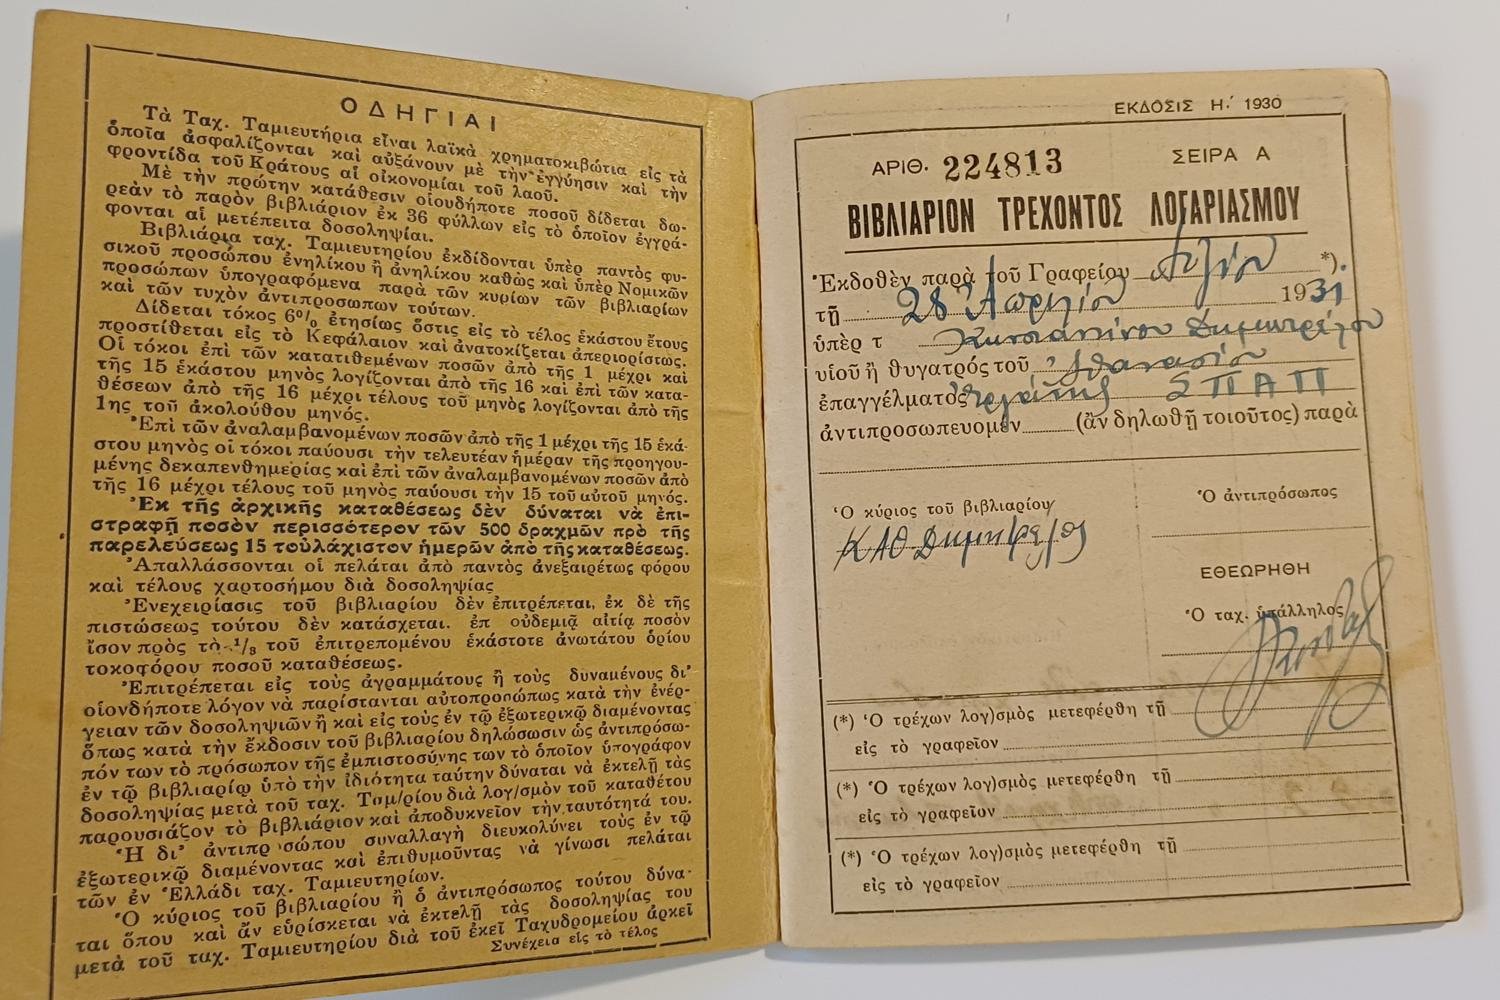 ΟΔΗΓΙΑΙ
Τὰ Ταχ. Ταμιευτήρια εἶναι λαϊκὰ χρηματοκιβώτια εἰς τὰ
ὁποῖα ἀσφαλίζονται καὶ αὐξάνουν μὲ τὴν ἐγγύησιν καὶ τὴν
φροντίδα τοῦ Κράτους αἱ οἰκονομίαι τοῦ λαοῦ.
Μὲ τὴν πρώτην κατάθεσιν οἱουδήποτε ποσοῦ δίδεται δω-
ρεὰν τὸ παρὸν βιβλιάριον ἐκ 36 φύλλων εἰς τὸ ὁποῖον ἐγγρά-
φονται αἱ μετέπειτα δοσοληψίαι.
Βιβλιάρια ταχ. Ταμιευτηρίου ἐκδίδονται ὑπὲρ παντὸς φυ-
σικοῦ προσώπου ἐνηλίκου ἢ ἀνηλίκου καθὼς καὶ ὑπὲρ Νομικῶν
προσώπων ὑπογραφόμενα παρὰ τῶν κυρίων τῶν βιβλιαρίων
καὶ τῶν τυχὸν ἀντιπροσώπων τούτων.
Δίδεται τόκος 6% ἐτησίως ὅστις εἰς τὸ τέλος ἑκάστου ἔτους
προστίθεται εἰς τὸ Κεφάλαιον καὶ ἀνατοκίζεται ἀπεριορίστως.
Οἱ τόκοι ἐπὶ τῶν κατατιθεμένων ποσῶν ἀπὸ τῆς 1 μέχρι καὶ
τῆς 15 ἑκάστου μηνὸς λογίζονται ἀπὸ τῆς 16 καὶ ἐπὶ τῶν κατα-
θέσεων ἀπὸ τῆς 16 μέχρι τέλους τοῦ μηνὸς λογίζονται ἀπὸ τῆς
1ης τοῦ ἀκολούθου μηνός.
Ἐπὶ τῶν ἀναλαμβανομένων ποσῶν ἀπὸ τῆς 1 μέχρι τῆς 15 ἑκά-
στου μηνὸς οἱ τόκοι παύουσι τὴν τελευτέαν ἡμέραν τῆς προηγου-
μένης δεκαπενθημερίας καὶ ἐπὶ τῶν ἀναλαμβανομένων ποσῶν ἀπὸ
τῆς 16 μέχρι τέλους τοῦ μηνὸς παύουσι τὴν 15 τοῦ αὐτοῦ μηνός.
Ἐκ τῆς ἀρχικῆς καταθέσεως δὲν δύναται νὰ ἐπι-
στραφῇ ποσὸν περισσότερον τῶν 500 δραχμῶν πρὸ τῆς
παρελεύσεως 15 τοὐλάχιστον ἡμερῶν ἀπὸ τῆς καταθέσεως.
Ἀπαλλάσσονται οἱ πελάται ἀπὸ παντὸς ἀνεξαιρέτως φόρου
καὶ τέλους χαρτοσήμου διὰ δοσοληψίας
Ἐνεχειρίασις τοῦ βιβλιαρίου δὲν ἐπιτρέπεται, ἐκ δὲ τῆς
πιστώσεως τούτου δὲν κατάσχεται. ἐπ οὐδεμιᾷ αἰτίᾳ ποσὸν
ἴσον πρὸς τὸ 1/3 τοῦ ἐπιτρεπομένου ἑκάστοτε ἀνωτάτου ὁρίου
τοκοφόρου ποσοῦ καταθέσεως.
Ἐπιτρέπεται εἰς τοὺς ἀγραμμάτους ἢ τοὺς δυναμένους δι'
οἱονδήποτε λόγον νὰ παρίστανται αὐτοπροσώπως κατὰ τὴν ἐνέρ-
γειαν τῶν δοσοληψιῶν ἢ καὶ εἰς τοὺς ἐν τῷ ἐξωτερικῷ διαμένοντας
ὅπως κατὰ τὴν ἔκδοσιν τοῦ βιβλιαρίου δηλώσωσιν ὡς ἀντιπρόσω-
πόν των τὸ πρόσωπον τῆς ἐμπιστοσύνης των τὸ ὁποῖον ὑπογράφον
ἐν τῷ βιβλιαρίῳ ὑπὸ τὴν ἰδιότητα ταύτην δύναται νὰ ἐκτελῇ τὰς
δοσοληψίας μετὰ τοῦ ταχ. Ταμ/ρίου διὰ λογ/σμὸν τοῦ καταθέτου
παρουσιάζον τὸ βιβλιάριον καὶ ἀποδυκνεῖον τὴν ταυτότητά του.
Ἡ δι' ἀντιπροσώπου συναλλαγὴ διευκολύνει τοὺς ἐν τῷ
ἐξωτερικῷ διαμένοντας καὶ ἐπιθυμοῦντας νὰ γίνωσι πελάται
τῶν ἐν Ἑλλάδι ταχ. Ταμιευτηρίων.
Ὁ κύριος τοῦ βιβλιαρίου ἢ ὁ ἀντιπρόσωπος τούτου δύνα-
ται ὅπου καὶ ἂν εὑρίσκεται νὰ ἐκτελῇ τὰς δοσοληψίας του
μετὰ τοῦ ταχ. Ταμιευτηρίου διὰ τοῦ ἐκεῖ Ταχυδρομείου ἀρκεῖ
Συνέχεια εἰς τὸ τέλος
ΕΚΔΟΣΙΣ Η.΄ 1930
ΑΡΙΘ. 224813 ΣΕΙΡΑ Α
ΒΙΒΛΙΑΡΙΟΝ ΤΡΕΧΟΝΤΟΣ ΛΟΓΑΡΙΑΣΜΟΥ
Ἐκδοθὲν παρὰ τοῦ Γραφείου *).
τῇ 28 Ἀπριλίου 1931.
ὑπὲρ τ Κωνσταντίνου Δημητρέλου
υἱοῦ ἢ θυγατρὸς τοῦ Ἀθανασίου
ἐπαγγέλματος Ἐργάτης ΣΠΑΠ
ἀντιπροσωπευομέν (ἂν δηλωθῇ τοιοῦτος) παρὰ
Ὁ κύριος τοῦ βιβλιαρίου
Ὁ ἀντιπρόσωπος
Κ Αθ Δημητρέλος
ΕΘΕΩΡΗΘΗ
Ὁ ταχ. ὑπάλληλος
(*) Ὁ τρέχων λογ)σμὸς μετεφέρθη τῇ
εἰς τὸ γραφεῖον
(*) Ὁ τρέχων λογ)σμὸς μετεφέρθη τῇ
εἰς τὸ γραφεῖον
(*) Ὁ τρέχων λογ)σμὸς μετεφέρθη τῇ
εἰς τὸ γραφεῖον